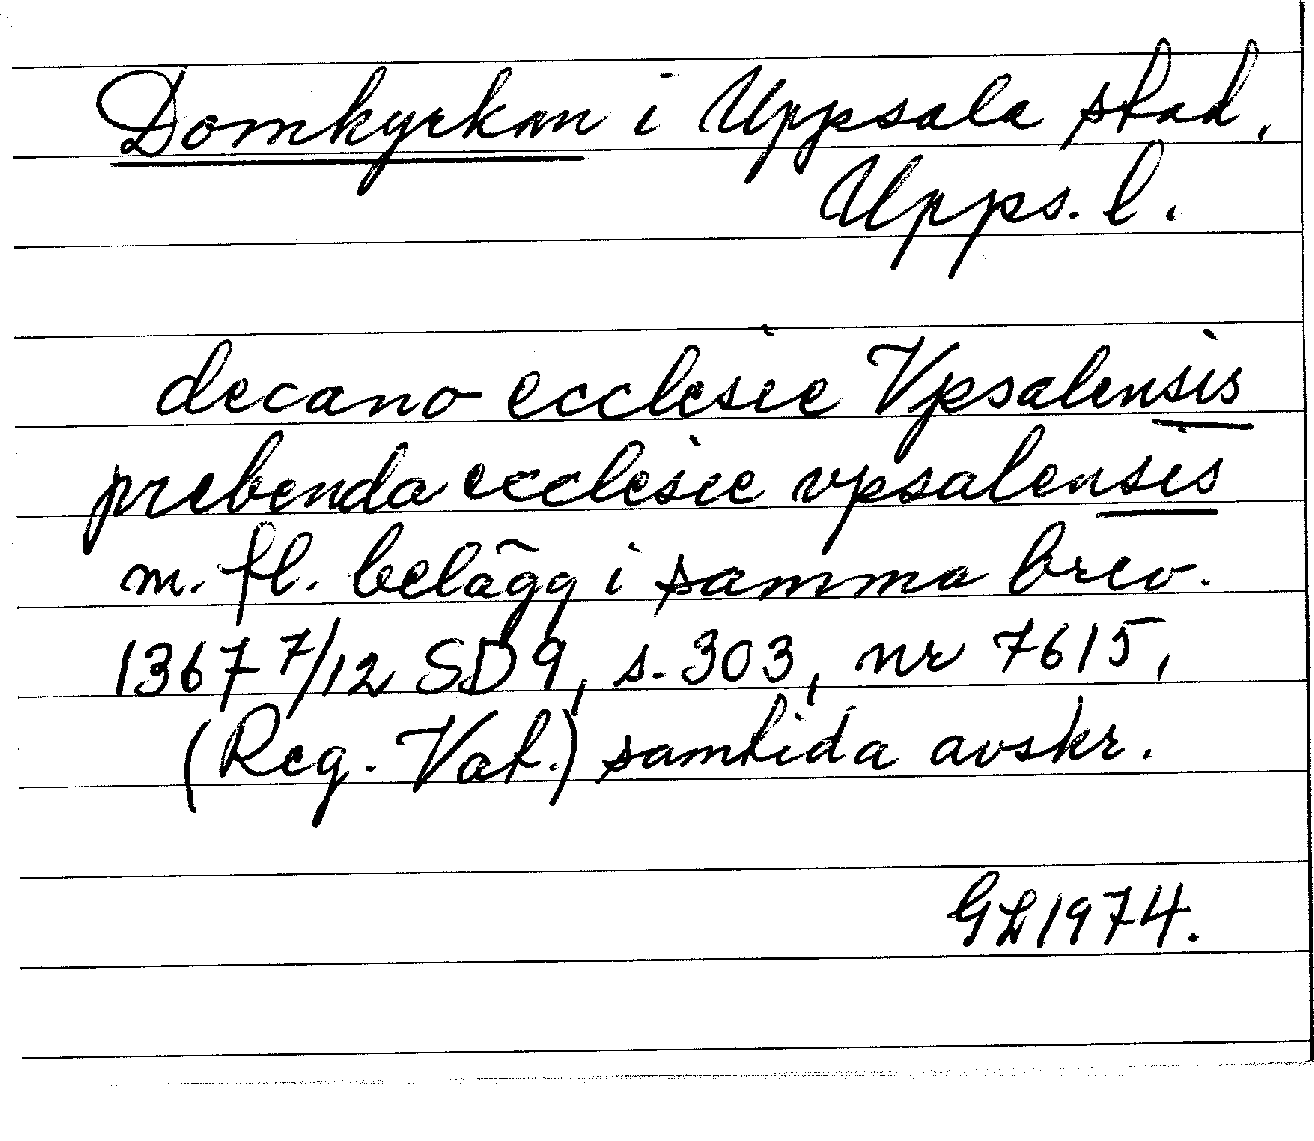 Domkyrkan i Uppsala stad,
Upps. l.
decano ecclesie Vpsalensis
prebenda ecclesie vpsalensis
m. fl. belägg i samma brev.
1367 7/12 SD 9, s. 303, nr 7615,
(Reg. Vat.) samtida avskr.
GL 1974.